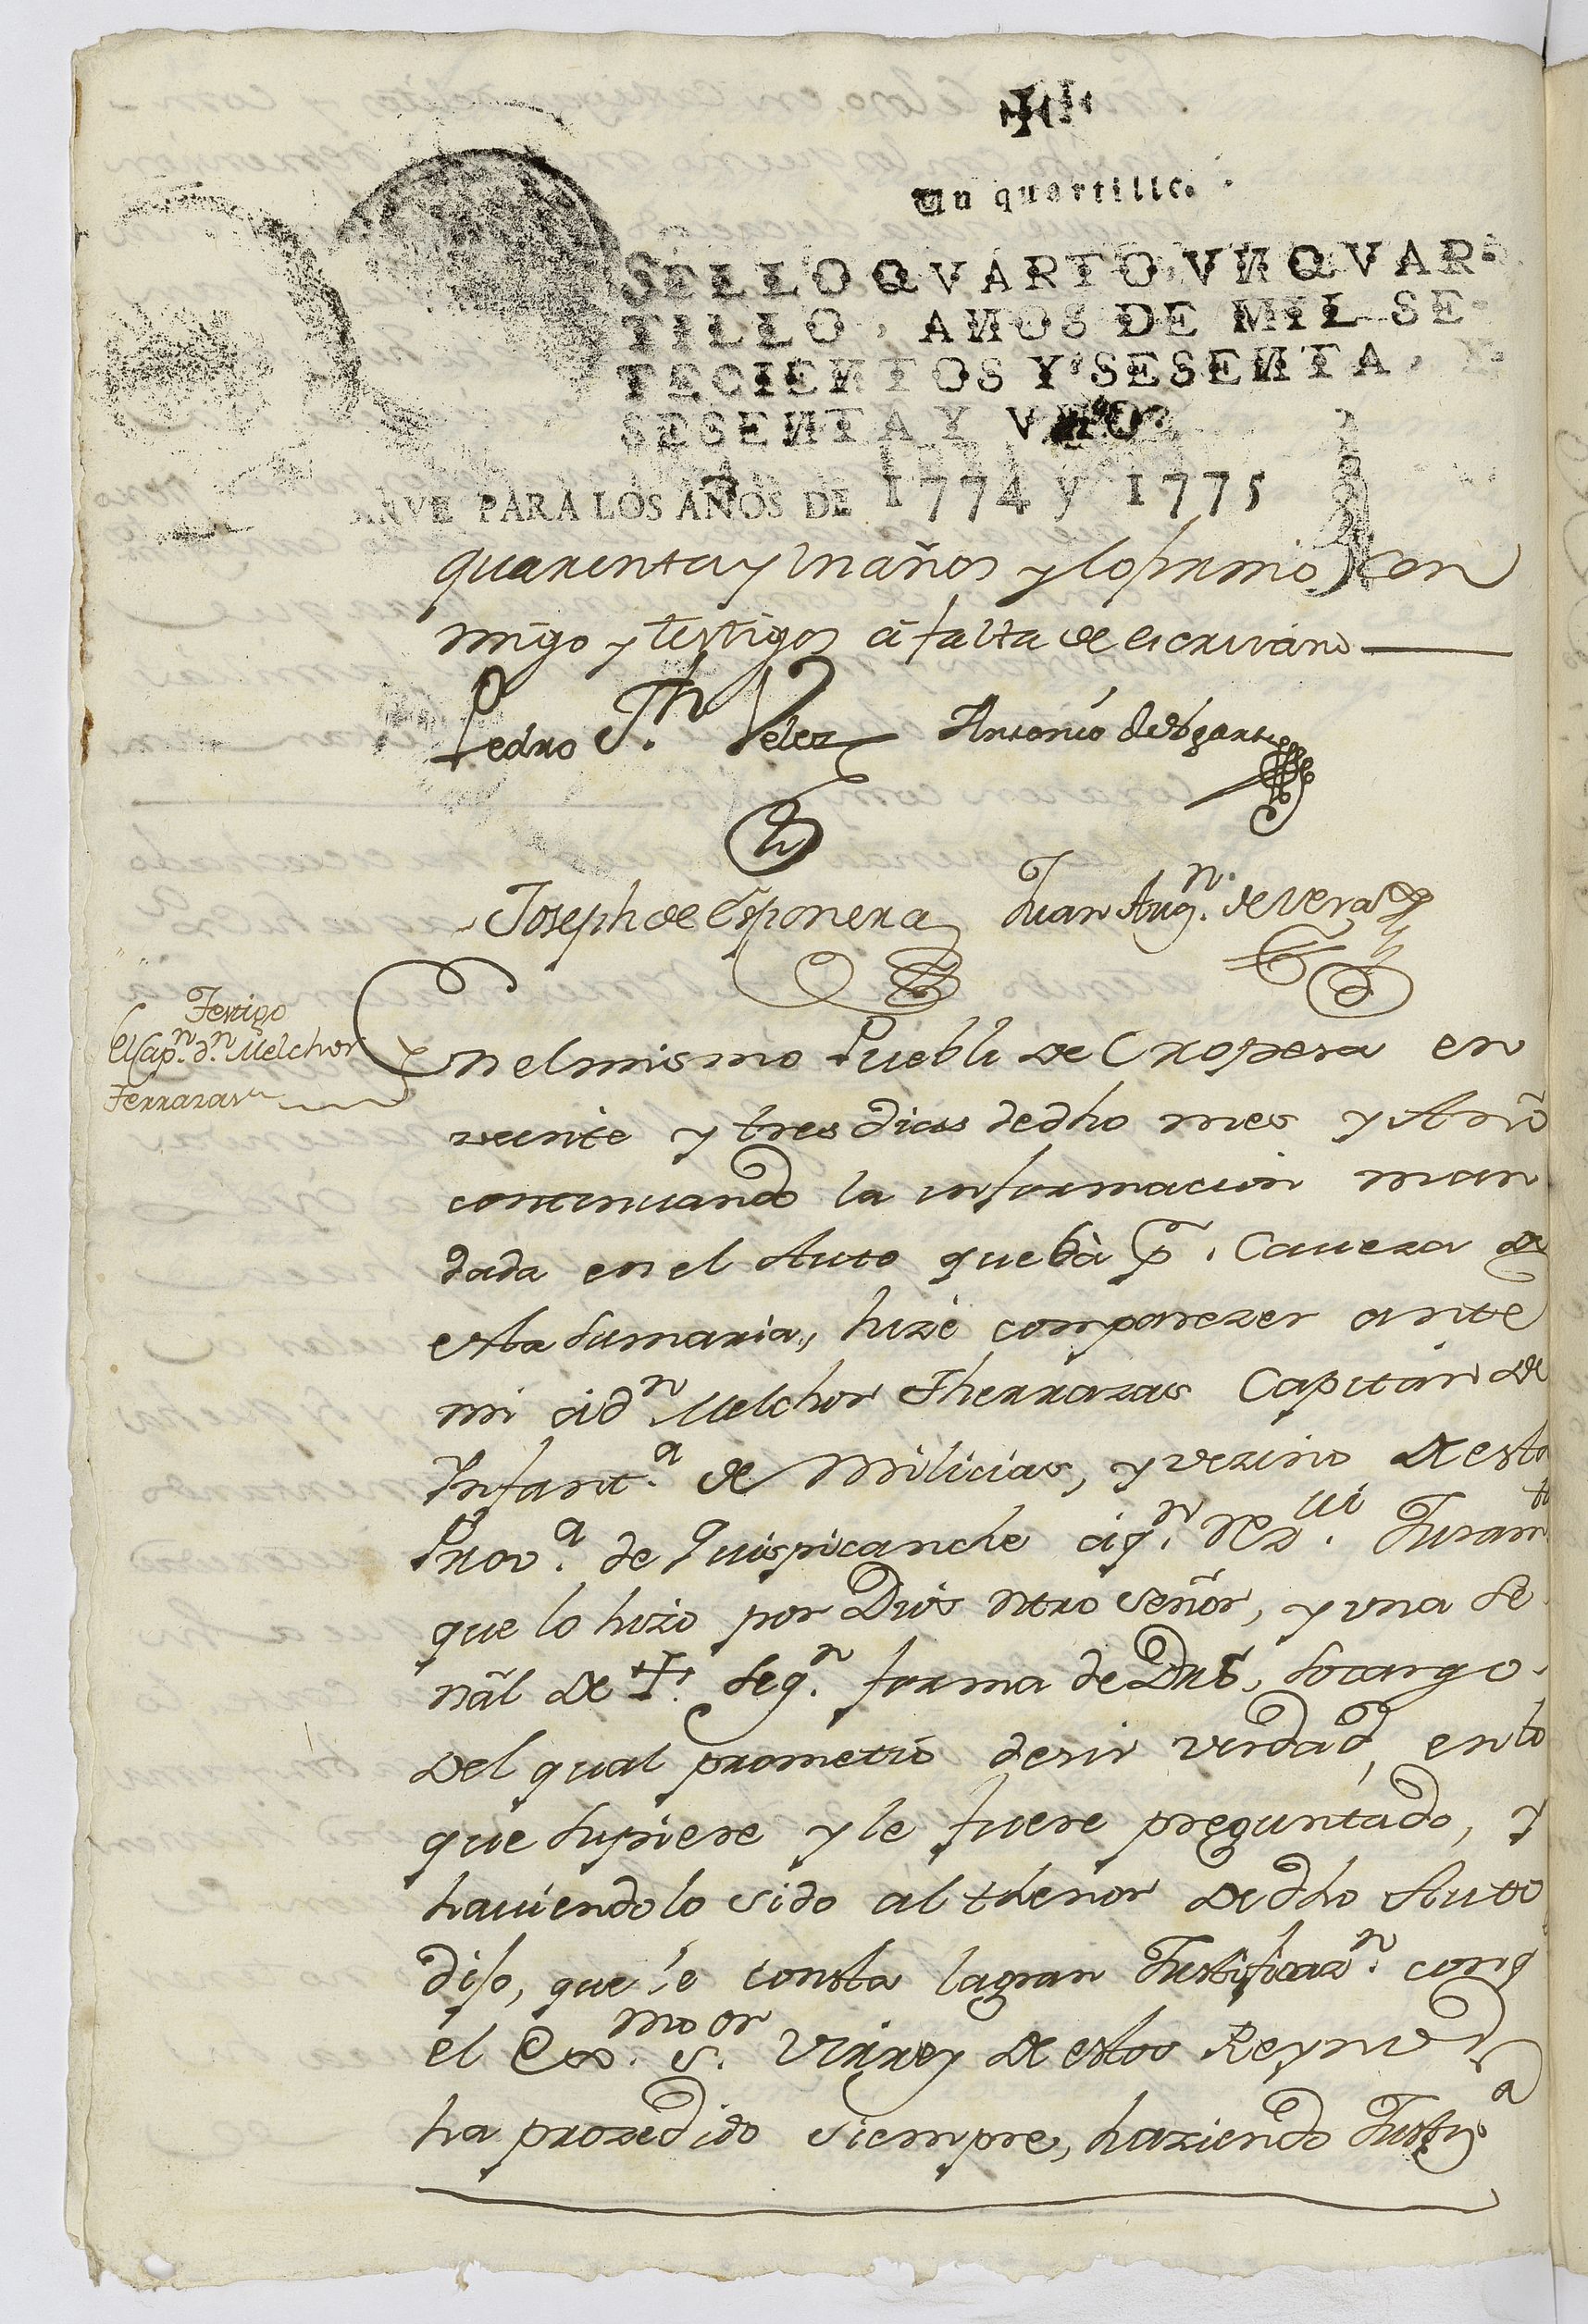 Un quartillo.
SELLO QVARTO, VN QVAR-
TILLO, AÑOS DE MIL SE-
TECIENTOS Y SESENTA, Y
SESENTA Y VNO.
PARA LOS AÑOS DE 1774 y 1775
quarenta y un años y lo firmo con
migo y testigos á falta de escrivano
Pedro Jph Velez Antonio de
Joseph de Esponera Juan Aug.n de Vera
Testigo
El Cap.n d.n Melchor
Terrazas
En el mismo Pueblo de Oropesa en
veinte y tres dias de dho mes y Año
continuando la informacion man
dada en el Auto que bà p.r Caveza de
esta sumaria, hize comparezer ante
mi á d.n Melchor Therrazas Capitan de
Infant.a de Milicias, y vezino de esta
Prov.a de Quispicanche á q.n Rezvi Juram.to
que lo hizo por Dios ntro Señor, y una se
ñal de ✝ seg.n forma de Dro, so cargo
del qual prometió desir verdad en lo
que supiere y le fuere preguntado, y
haviendolo sido al thenor de dho Auto
dijo, que le consta la gran Justificaz.n con q
el Exmo. S.or Virrey de estos Reynos
ha prozedido siempre, haziendo Justi.a